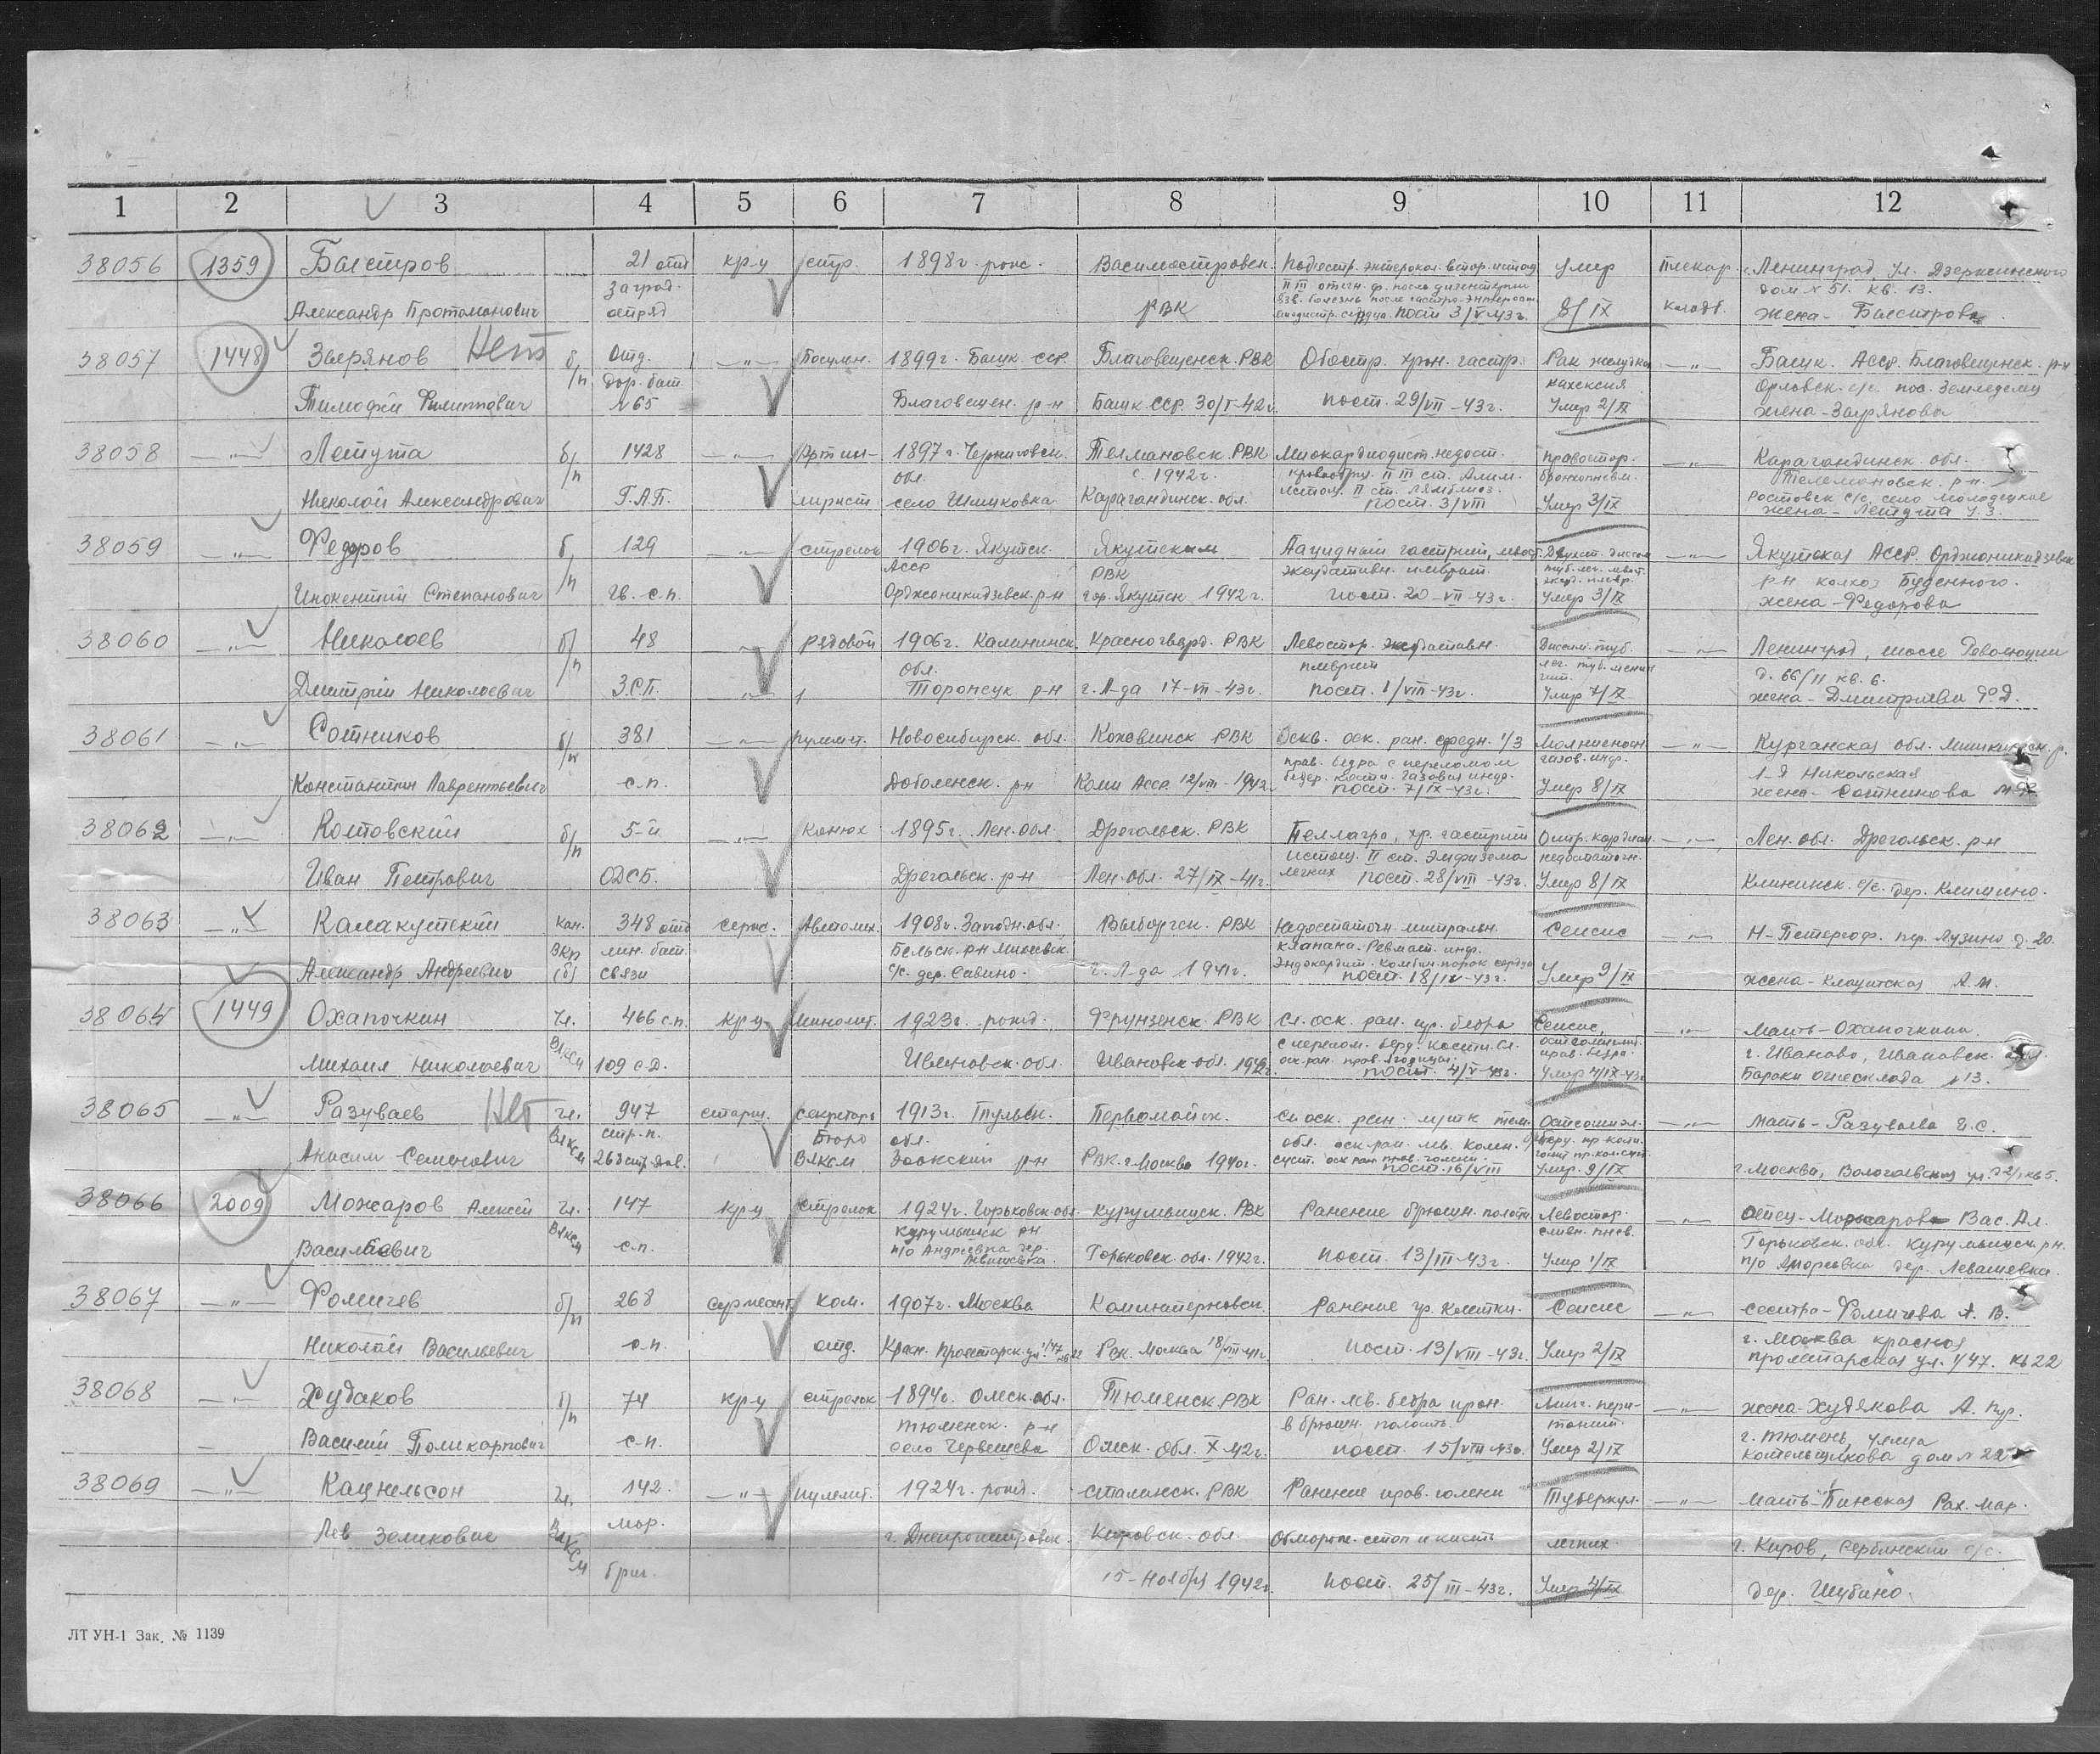 1 2 3 4 5 6 7 8 9 10 11 12
38056 1359 Быстров 21 отд. кр-ц стр. 1898г. рожд. Василеостровск. умер Пискар. г. Ленинград, ул. Дзержинского
Заград. дом № 51. кв. 13.
Александр отряд РВК пост 3/V-43г. 8/IX кладб. жена - Быстрова
38057 1448 Зверянов Нет б/п Отд. —"— 1899г. Башк. ССР. Благовещенск. РВК Обостр. хрон. гастр. Рак желудка —"— Башк. АССР. Благовещенск. р-н
Дор. бат. кахексия Орловск. с/с. пос. Земледелец
Тимофей Филиппович №65 Благовещен. р-н Башк ССР. 30/I-42г. пост. 29/VII-43г. Умер 2/IX жена - Зверянова
38058 —"— Летута б/п 1428 —"— Артил- 1897г. Черниговск. Тельмановск. РВК Миокардиодист. недост. правостор. —"— Карагандинск. обл.
обл. с 1942г. II III ст. Алим. бронхопневм. Тельмановск. р-н.
Николай Александрович Г.А.П. лерист село Шишковка Карагандинск. обл. истощ. II ст. Лямблиоз. Умер 3/IX Ростовск с/с. село Молодецкое
пост. 3/VIII жена - Летута
38059 —"— Федоров б/п 129 —"— стрелок 1906г. Якутск. Якутским Анацидный гастрит, —"— Якутская АССР. Орджоникидзевск.
АССР РВК экссудативн. плеврит р-н колхоз Буденного.
Инокентий Степанович гв. с.п. Орджоникидзевск. р-н гор. Якутск 1942г. пост. 20-VII-43г. Умер 3/IX жена - Федорова
38060 —"— Николаев б/п 48 —"— рядовой 1906г. Калининск. Красногвард. РВК Левостор. экссудативн. Диссем. туб. —"— Ленинград, шоссе Революции
обл. плеврит лег. туб. менин- д. 66/11 кв. 6.
Дмитрий Николаевич З.С.П. —"— Торопецк р-н г. Л-да 17-VI-43г. пост. 1/VIII-43г. гит. Умер 7/IX жена - Дмитриева
38061 —"— Сотников б/п 381 —"— пулемет. Новосибирск. обл. РВК оск. ран. средн. 1/3 Молниеносн. —"— Курганская обл. Мишкинск. р.
прав. бедра с переломом газов. инф. Никольская
Константин Лаврентьевич с.п. р-н Коми АССР. 12/VIII-1942г. бедр. кости. Газовая инф. Умер 8/IX жена - Сотникова
пост. 7/IX-43г.
38062 —"— Колтовский б/п 5-й —"— Конюх 1895г. Лен. обл. Дрегольск. РВК Пеллагра, хр. гастрит Остр. кардиал. —"— Лен. обл. Дрегольск. р-н
истощ. II ст. Эмфизема недостаточн.
Иван Петрович ОДСБ. Дрегольск. р-н Лен. обл. 27/IX-41г. легких пост. 28/VIII-43г. Умер 8/IX Климинск. с/с. дер. Климино.
38063 —"— Калакутский кан. 348 отд сержс. 1908г. Западн. обл. Выборгск. РВК Недостаточн. митральн. Сепсис —"— Н-Петергоф. д. 20.
ВКП лин. бат. Бельск. р-н клапана. Ревмат. инф.
Александр Андреевич (б) связи с/с. дер. Савино. г. Л-да 1941г. Эндокардит. Комбин. порок сердца Умер 9/IX жена - А.М.
пост. 18/IV-43г.
38064 1449 Охапочкин Чл. 466 с.п. кр-ц Миномет. 1923г. рожд. Фрунзенск. РВК Сл. оск. ран. пр. бедра Сепсис, —"— Мать - Охапочкина.
ВЛКСМ с перелом. бедр. кости. Сл. остеомиелит г. Иваново, Ивановск. обл.
Михаил Николаевич 109 с.д. Ивановск. обл. Ивановск обл. 1942г. оск. ран. прав. ягодицы. прав. бедра. Бараки №13.
пост. 4/V-43г. Умер 4/IX-43г
38065 —"— Разуваев Нет Чл. 947 старш. секретарь 1913г. Тульск. Первомайск. —"— Мать - Разуваева
ВЛКСМ стр. п. Бюро обл.
Анисим Семенович 268 стр. див. ВЛКСМ Заокский р-н РВК. г. Москва 1940г. пост. 16/VIII Умер. 9/IX г. Москва,
38066 2009 Можаров Алексей Чл. 147 кр-ц стрелок 1924г. Горьковск. обл. РВК Ранение брюшн. полости. Левостор. —"— Отец - Можаров Вас. Ал.
ВЛКСМ р-н сливн. пнев. Горьковск. обл. р-н.
Васильевич с.п. п/о Андреевка дер. Горьковск. обл. 1942г. пост. 13/III-43г. Умер 1/IX п/о Андреевка дер. Левашевка.
38067 —"— Фомичев б/п 268 сержант. ком. 1907г. Москва Коминтерновск. Ранение гр. клетки. Сепсис —"— сестра - Фомичева А. В.
г. Москва красная
Николай Васильевич с.п. отд. Красн. Пролетарск. ул. 1/47 РВК. Москва 18/VIII-41г. пост. 13/VIII-43г. Умер 2/IX пролетарская ул. 1/47. кв 22
38068 —"— Худаков б/п 74 кр-ц стрелок 1894г. Омск. обл. Тюменск РВК Ран. лев. бедра прон. —"— жена - Худякова А.
Тюменск. р-н в брюшн. полость. г. Тюмень, улица
Василий Поликарпович с.п. село Червешева Омск. обл. X-42г. пост. 15/VIII-43г. Умер 2/IX Котельщикова дом № 22
38069 —"— Кацнельсон Чл. 142. —"— пулемет. 1924г. рожд. Сталинск. РВК Ранение прав. голени Туберкул. —"— мать - Пинская
Лев Зеликович ВЛКСМ мор. г. Днепропетровск. Кировск. обл. Обморож. стоп и кисть легких. г. Киров, с/с.
бриг. 15-ноября 1942г. пост. 25/III-43г. Умер 4/IX дер. Шубино.
ЛТ УН-1 Зак. № 1139